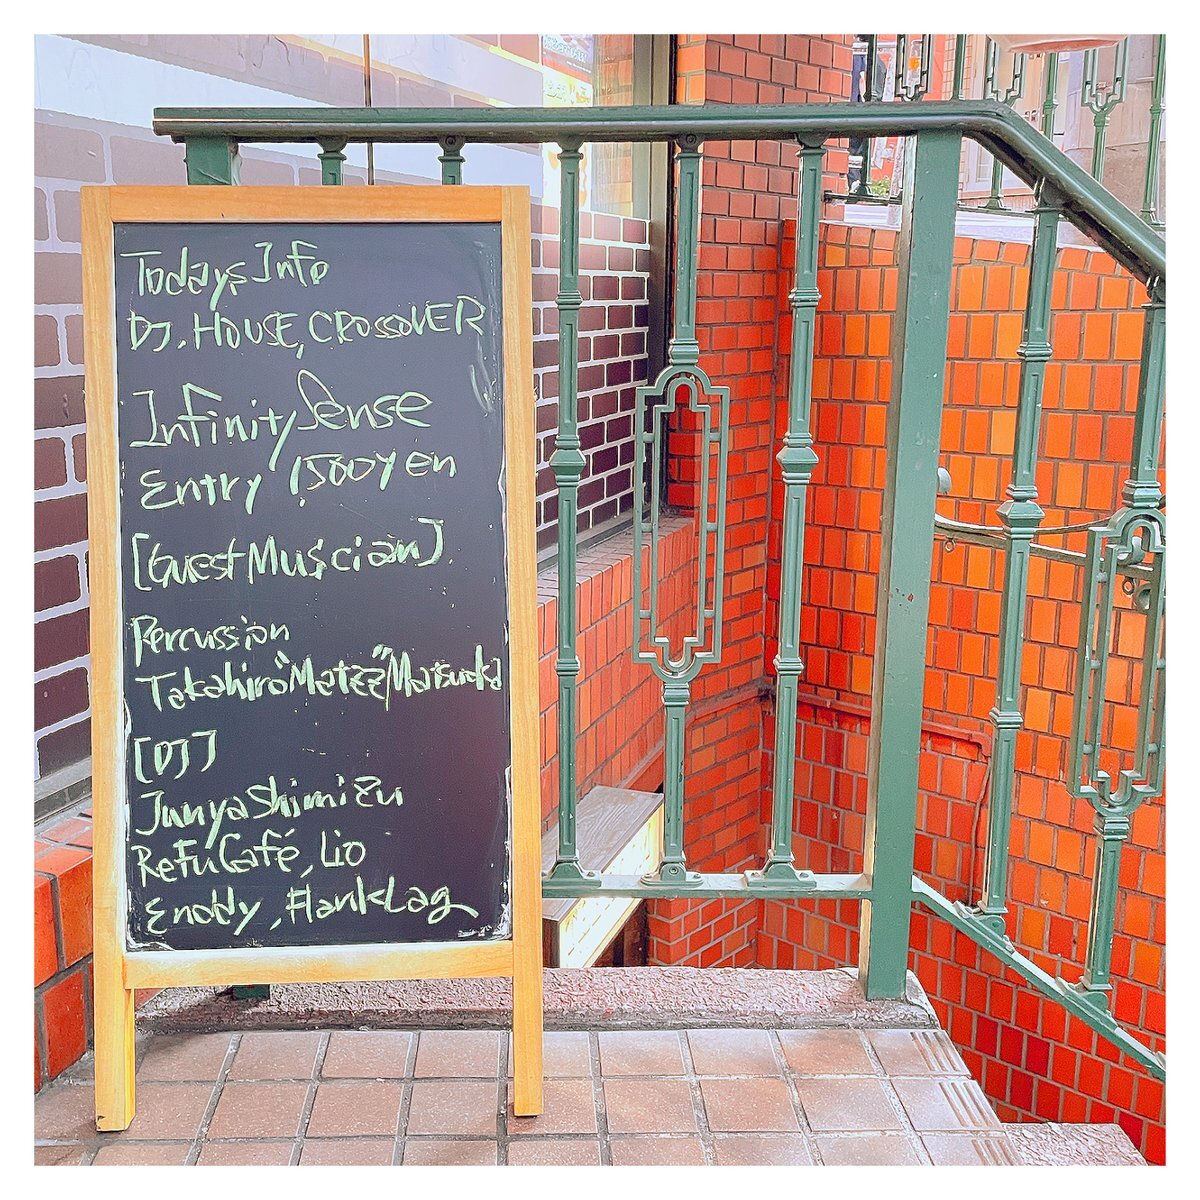 Todays Info
DJ. HOUSE, CROSSOVER
Infinity Sense
Entry 1,500yen
[Guest Musician]
Percussion
Takahiro "Matzz" Matsuoka
[DJ]
Junya Shimizu
ReFuCafé, Lio
Enddy, FlankLag